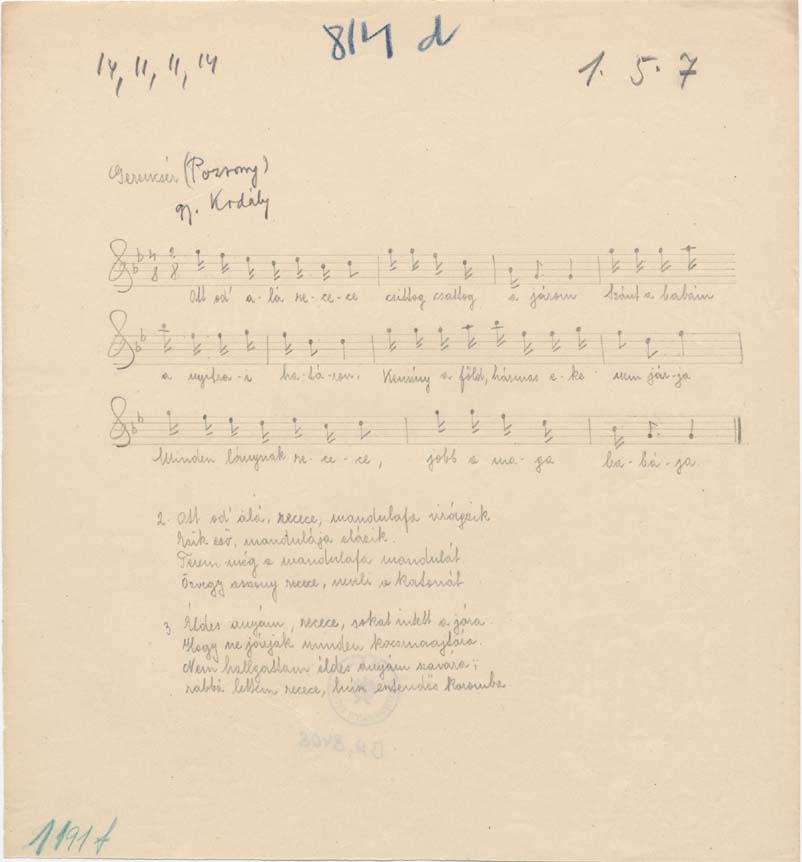 814 d
14, 11, 11, 14
1. 5. 7
Gerencsér (Pozsony)
gy. Kodály
4 2
8 8
Ott od' a-lá re-ce-ce csillog csattog a járom Szánt a babám
a nyitra-i ha-tá-ron. Kemény a föld, hármas e-ke nem jár-ja
Minden lánynak re-ce-ce, jobb a ma-ga ba-bá-ja
2. Ott od' álá, recece, mandulafa virágzik
Esik eső, mandulája elázik.
Terem még a mandulafa mandulát
Özvegy asszony recece, neveli a katonát
3. Éldes anyám, recece, sokat intett a jóra
Hogy ne jóujak minden kocsmaajtóra.
Nem hallgattam éldes anyám szavára;
rabbá lettem recece, húsz esztendős koromba
1191 f